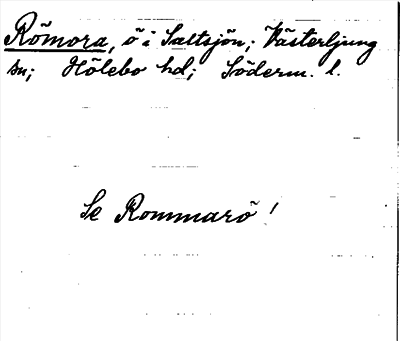 Römora, ö i Saltsjön; Västerljung
sn; Hölebo hd; Söderm. l.
Se Rommarö!